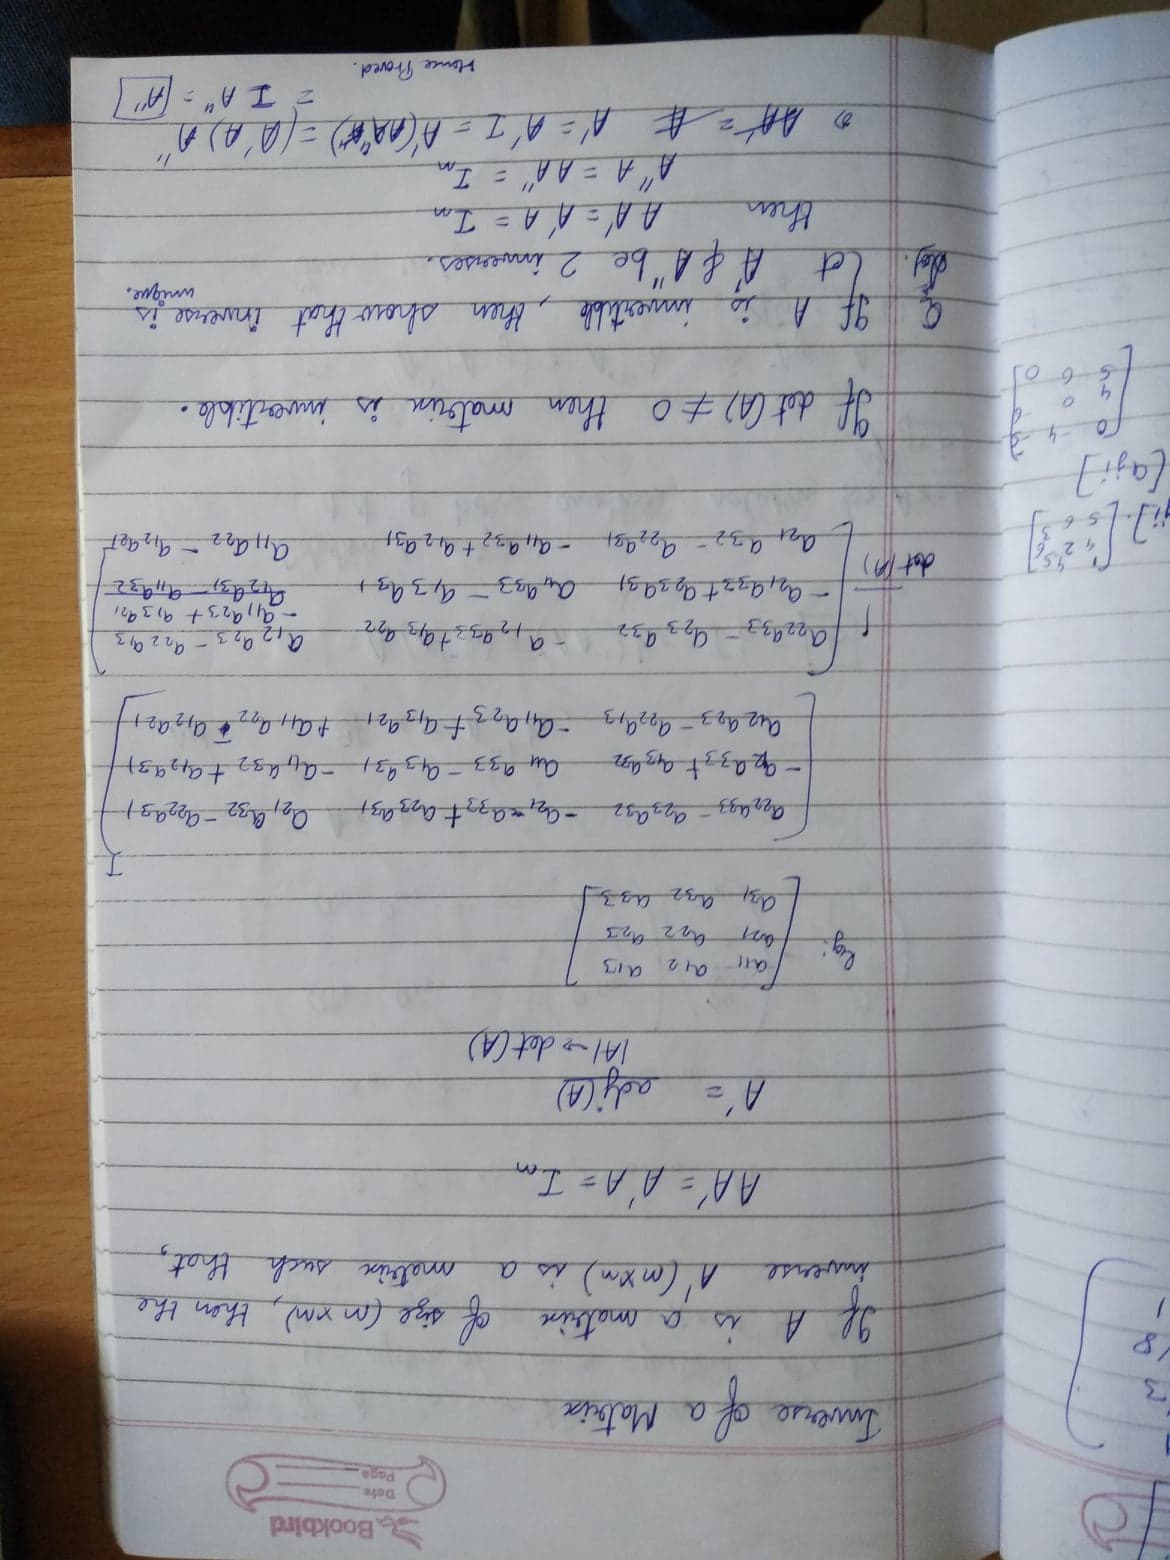 Bookbird
Date
Page
Inverse of a Matrix
If A is a matrix of size (m×m), then the
inverse A' (m×m) is a matrix such that,
AA' = A'A = Im
A' = adj(A)
|A| → det(A)
eg: [a11 a12 a13
a21 a22 a23
a31 a32 a33]
[a22a33 - a23a32 -a21a33 + a23a31 a21a32 - a22a31
-a12a33 + a13a32 a11a33 - a13a31 -a11a32 + a12a31
a12a23 - a22a13 -a11a23 + a13a21 +a11a22 - a12a21] T
1 [a22a33 - a23a32 -a12a33 + a13a22 a12a23 - a22a13
-a11a23 + a13a21
det(A) -a21a33 + a23a31 a11a33 - a13a31
a21a32 - a22a31 -a11a32 + a12a31 a11a22 - a12a21]
If det(A) ≠ 0 then matrix is invertible.
Q If A is invertible, then show that inverse is
unique.
Let A' & A'' be 2 inverses.
then AA' = A'A = Im
A''A = AA'' = Im
A' = A'I = A'(AA'') = (A'A) A''
= I A'' = [A'']
Hence Proved.
[aji]
[0 -4 -2
4 0 -2
5 6 0]